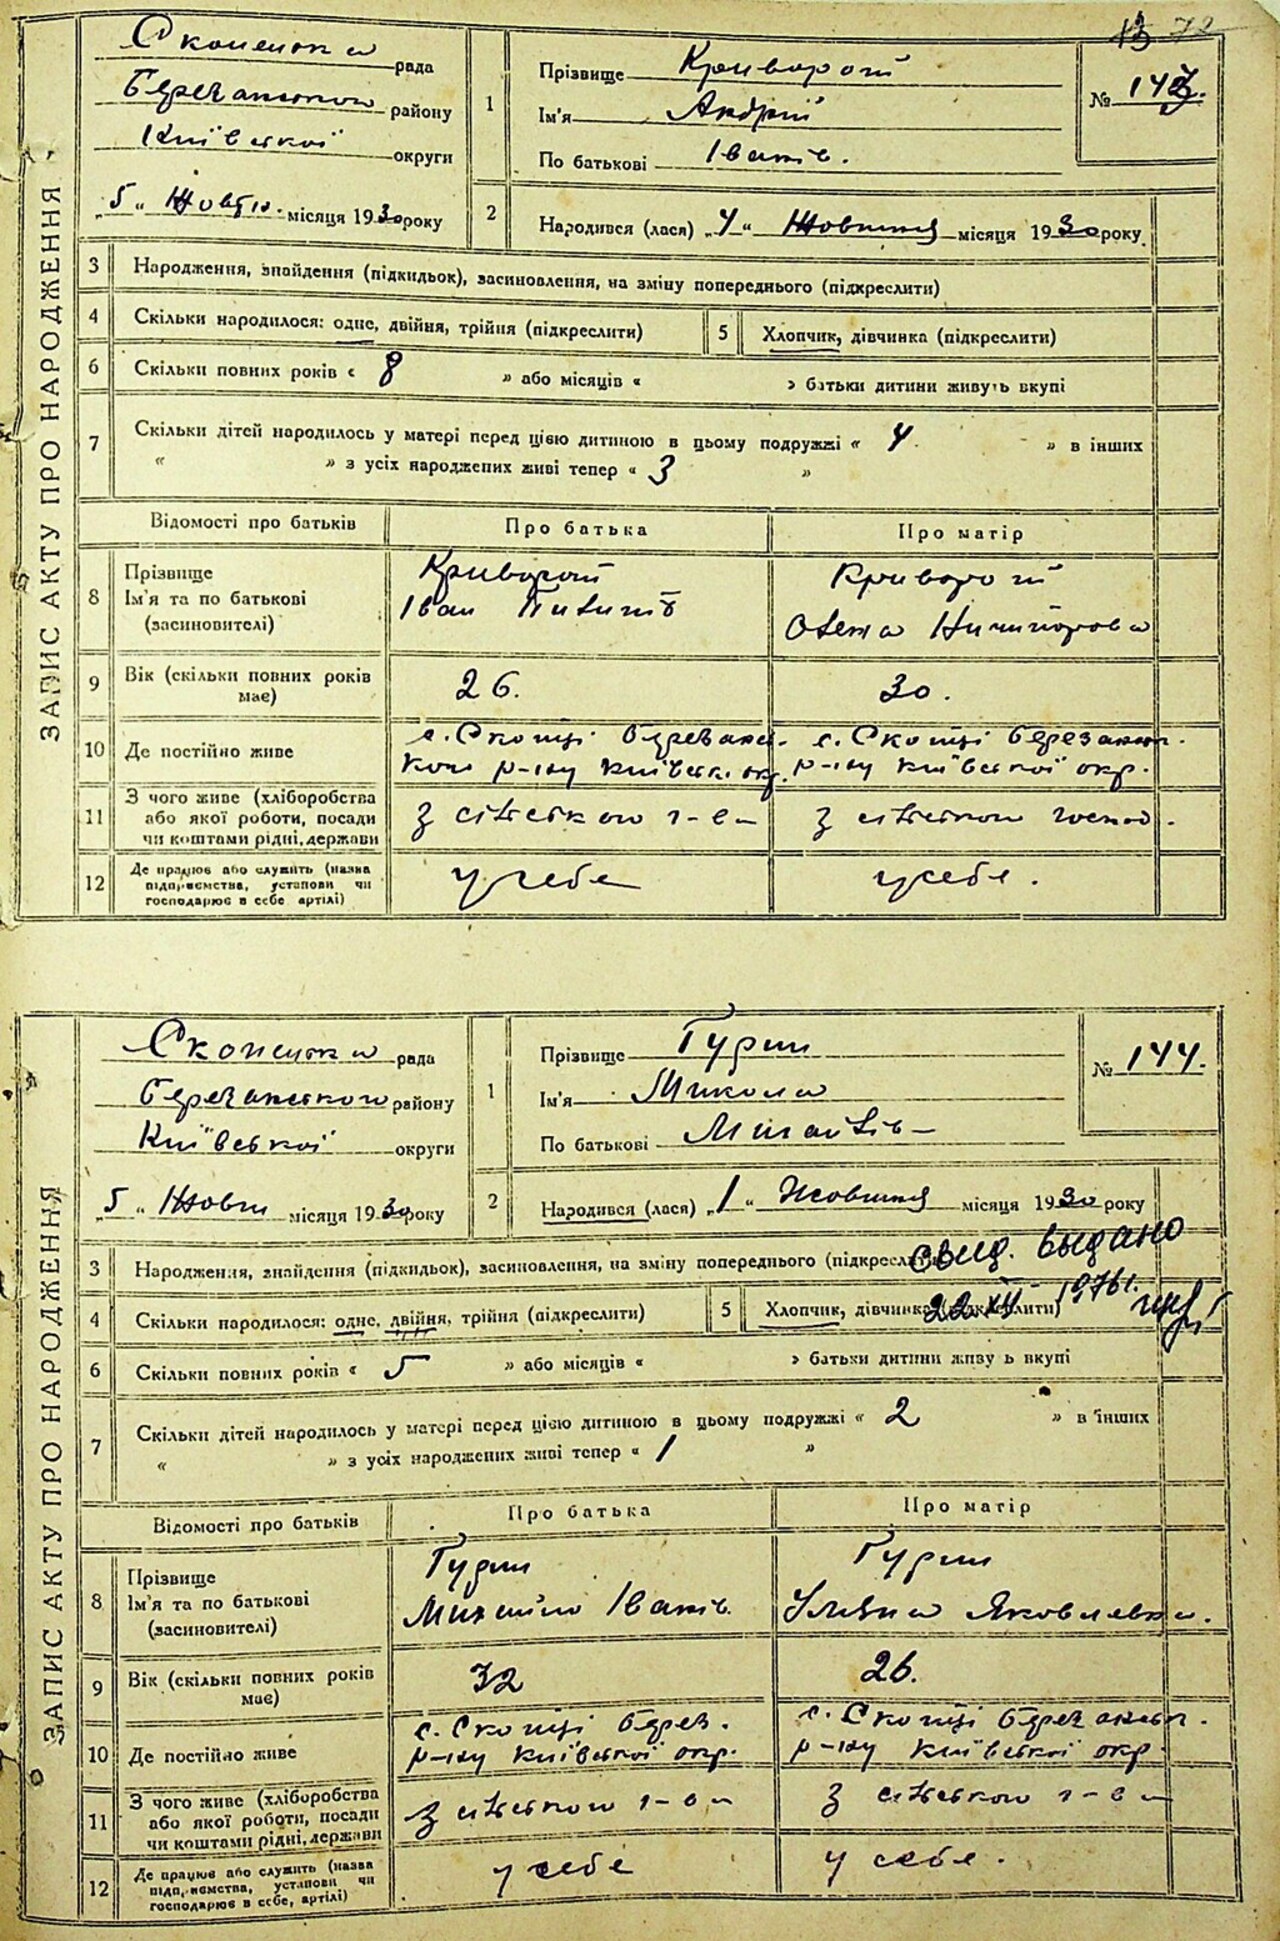 72
ЗАПИС АКТУ ПРО НАРОДЖЕННЯ
Скопецька рада
Березанського району
Київської округи
„5“ Жовтн. місяця 1930 року
1
Прізвище Криворот
Ім'я Андрій
По батькові Іванів.
№ 143.
2 Народився (лася) „4“ Жовтня місяця 1930 року
3 Народження, знайдення (підкидьок), засиновлення, на зміну попереднього (підкреслити)
4 Скільки народилося: одне, двійня, трійня (підкреслити) 5 Хлопчик, дівчинка (підкреслити)
6 Скільки повних років « 8 » або місяців « » батьки дитини живуть вкупі
7 Скільки дітей народилось у матері перед цією дитиною в цьому подружжі « 4 » в інших
« » з усіх народжених живі тепер « 3 »
Відомості про батьків Про батька Про матір
8 Прізвище Криворот Криворот
Ім'я та по батькові Іван
(засиновителі) Олена Ничипорова
9 Вік (скільки повних років має) 26. 30.
10 Де постійно живе с. Скопці Березанс- с. Скопці Березанськ.
кого р-ну Київськ. окр. р-ну Київської окр.
11 З чого живе (хліборобства
або якої роботи, посади З сільського г-ва З сільського господ.
чи коштами рідні, держави
12 Де працює або служить (назва
підприємства, установи чи у себе у себе.
господарює в себе артілі)
ЗАПИС АКТУ ПРО НАРОДЖЕННЯ
Скопецька рада
Березанського району
Київської округи
„5“ Жовтн місяця 1930 року
1
Прізвище Гурин
Ім'я Микола
По батькові Михайлів
№ 144.
2 Народився (лася) „1“ Жовтня місяця 1930 року
3 Народження, знайдення (підкидьок), засиновлення, на зміну попереднього (підкреслити)
свид. выдано
22 XII 1976 г.
4 Скільки народилося: одне, двійня, трійня (підкреслити) 5 Хлопчик, дівчинка (підкреслити)
6 Скільки повних років « 5 » або місяців « » батьки дитини живу ь вкупі
7 Скільки дітей народилось у матері перед цією дитиною в цьому подружжі « 2 » в інших
« » з усіх народжених живі тепер « 1 »
Відомості про батьків Про батька Про матір
8 Прізвище Гурин Гурин
Ім'я та по батькові Михайло Іванів. Уляна Яковлевна.
(засиновителі)
9 Вік (скільки повних років має) 32 26.
10 Де постійно живе с. Скопці Берез. с. Скопці Березанськ.
р-ну Київської окр. р-ну Київської окр.
11 З чого живе (хліборобства
або якої роботи, посади З сільського г-ва З сільського г-ва
чи коштами рідні, держави
12 Де працює або служить (назва
підприємства, установи чи у себе у себе.
господарює в себе, артілі)